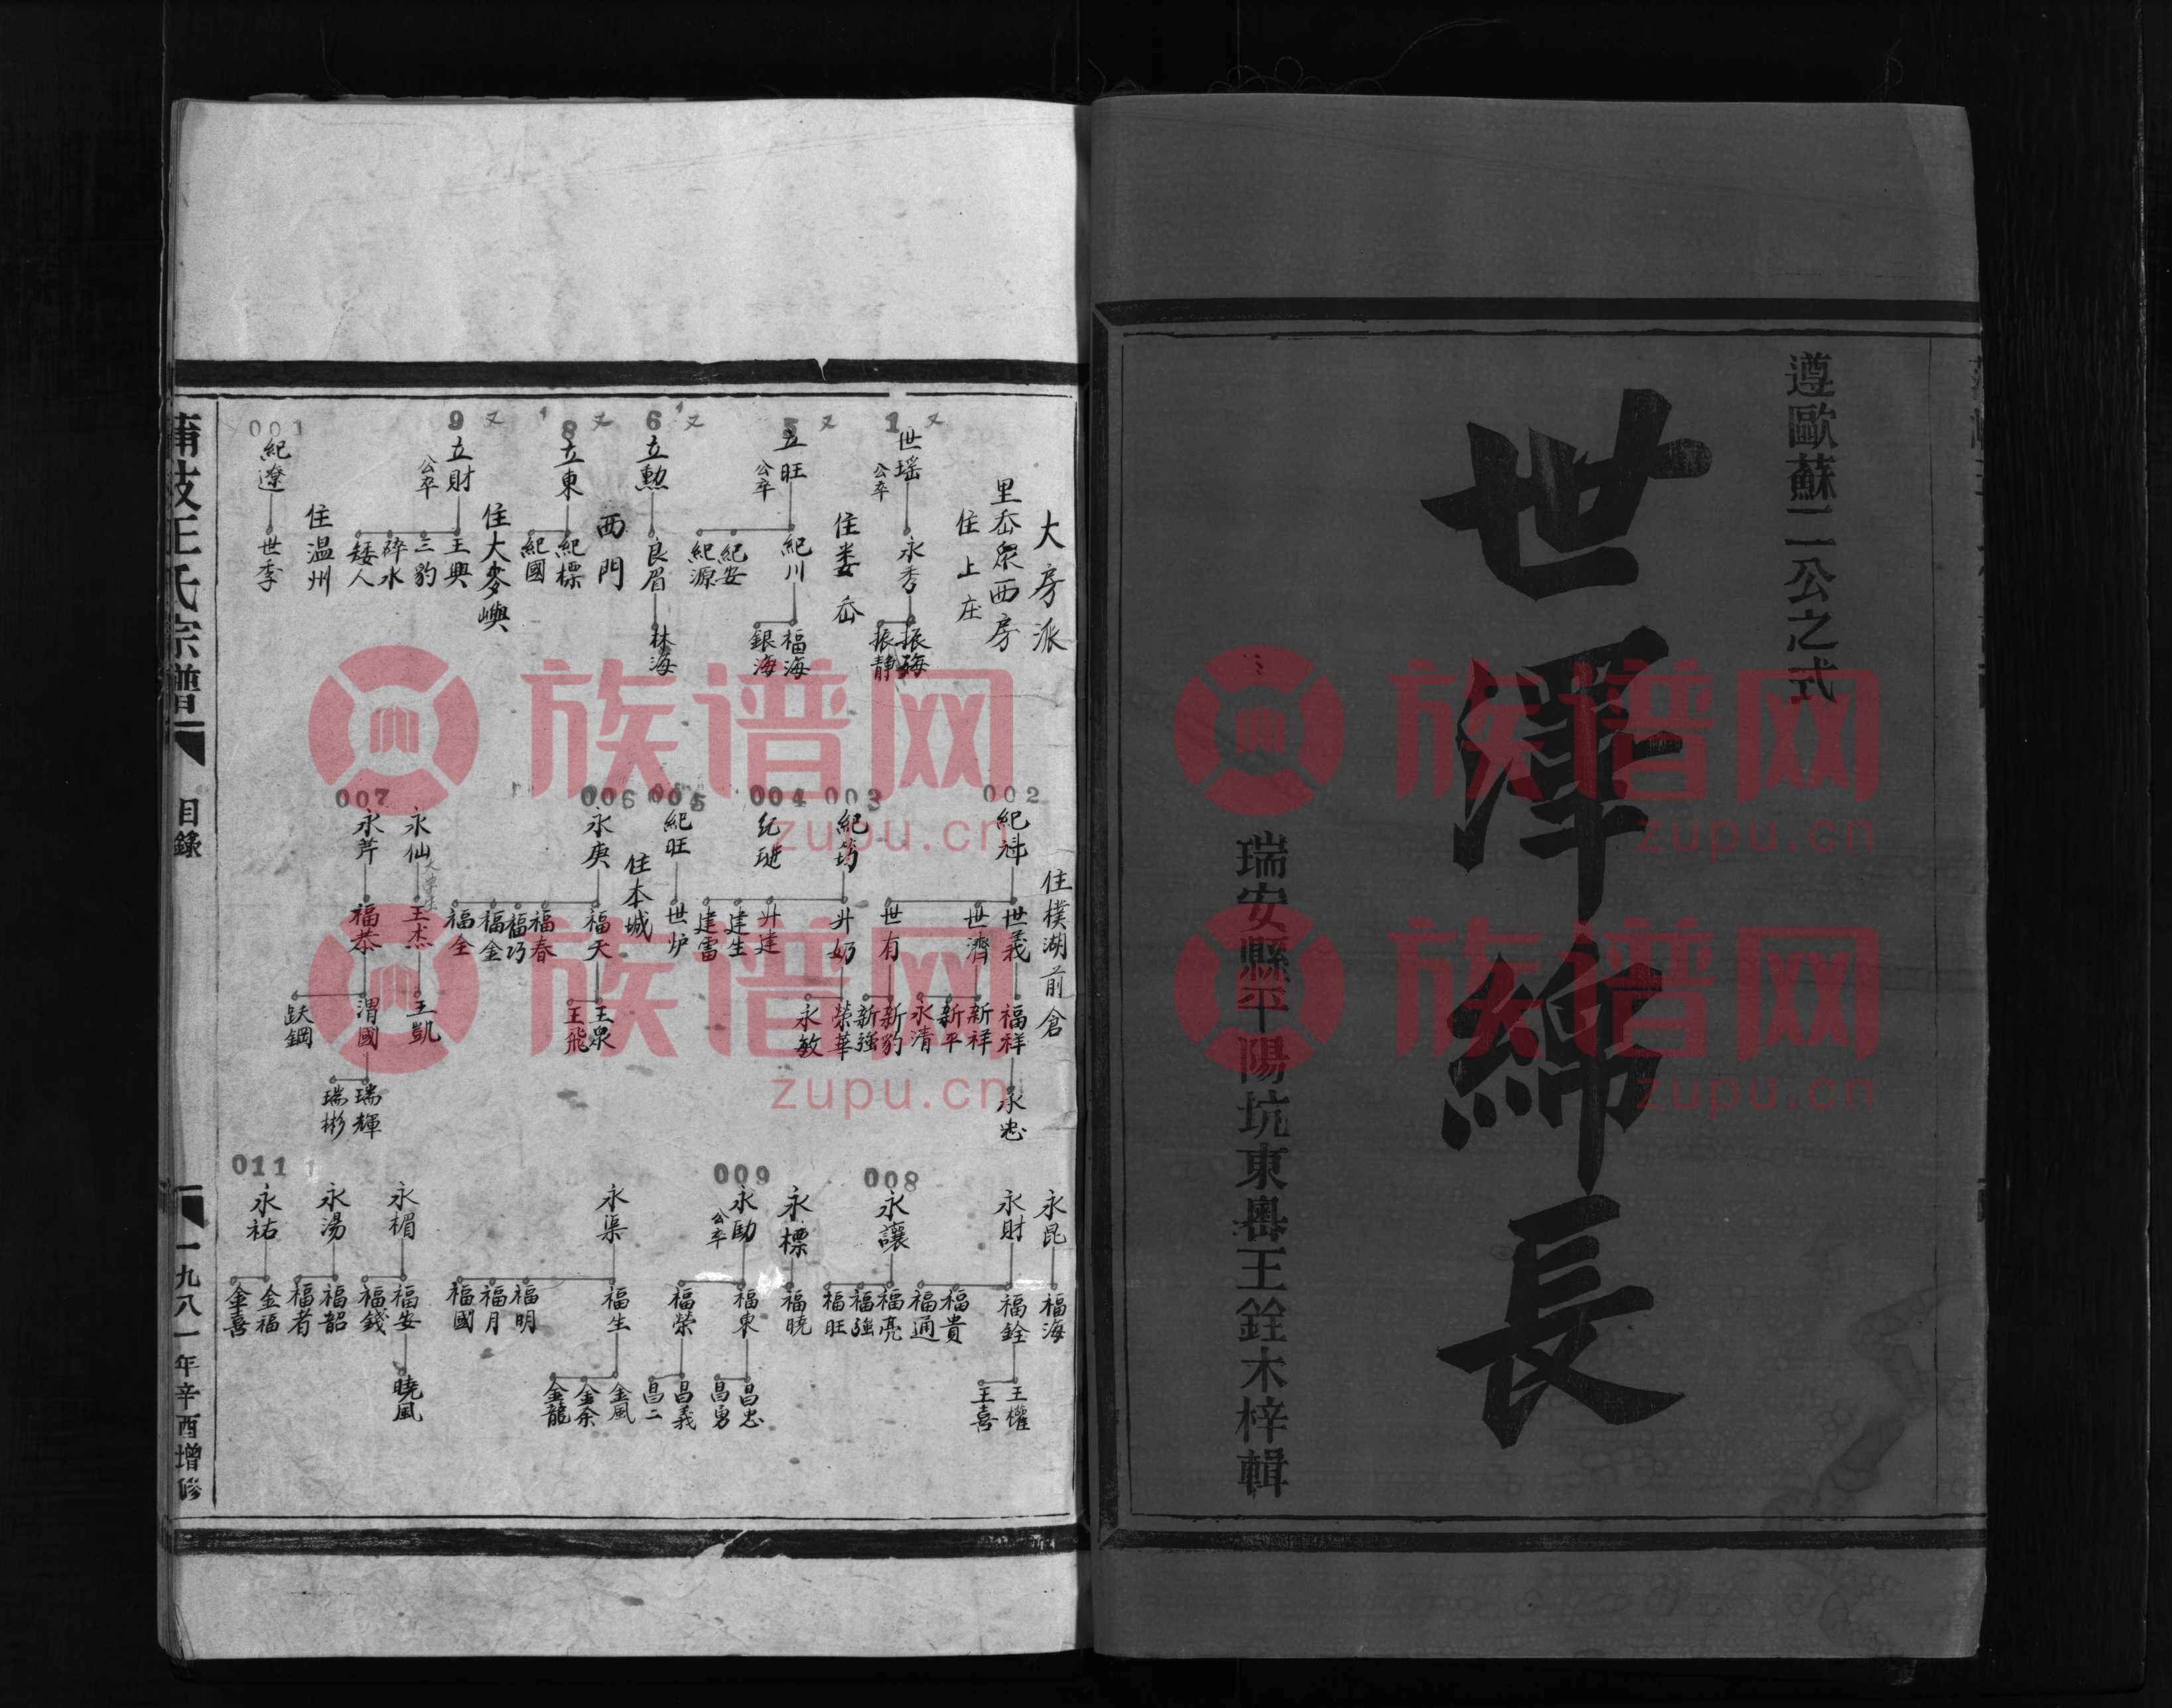 遵歐蘇二公之式
世澤綿長
瑞安縣平陽坑東嶴王銓木梓輯
大房派
里岙眾西房
住上庄
又
1
世瑶
公卒
永秀
振海
振静
住娄岙
又
5
立旺
公卒
紀川
紀安
紀源
福海
銀海
又
6
立勲
良眉
林海
西門
又
8
立東
紀標
紀國
住大麥嶼
又
9
立財
公卒
王興
三豹
碎水
矮人
住温州
001
紀遼
世季
住樸湖前倉
002
紀科
世義
世濟
世有
福祥
新祥
新平
永清
新豹
新強
永忠
003
紀筠
升奶
升建
建生
建雷
榮華
永敏
004
005
紀旺
世炉
住本城
006
永庚
福天
福春
福巧
福金
福全
王泉
王飛
永仙
王杰
王凱
007
永芹
福恭
渭國
跃鋼
瑞輝
瑞彬
永昆
福海
永財
福銓
福貴
福通
王權
王喜
008
永讓
福亮
福強
福旺
永標
福曉
009
永勛
公卒
福東
福榮
昌忠
昌勇
昌義
昌二
永渠
福生
福明
福月
福國
金風
金余
金龍
永楣
福安
福錢
曉風
永湯
福韶
福者
011
永祐
金福
金喜
蒲岐王氏宗譜
目錄
一九八一年辛酉增修
族谱网
zupu.cn
族谱网
zupu.cn
族谱网
zupu.cn
族谱网
zupu.cn